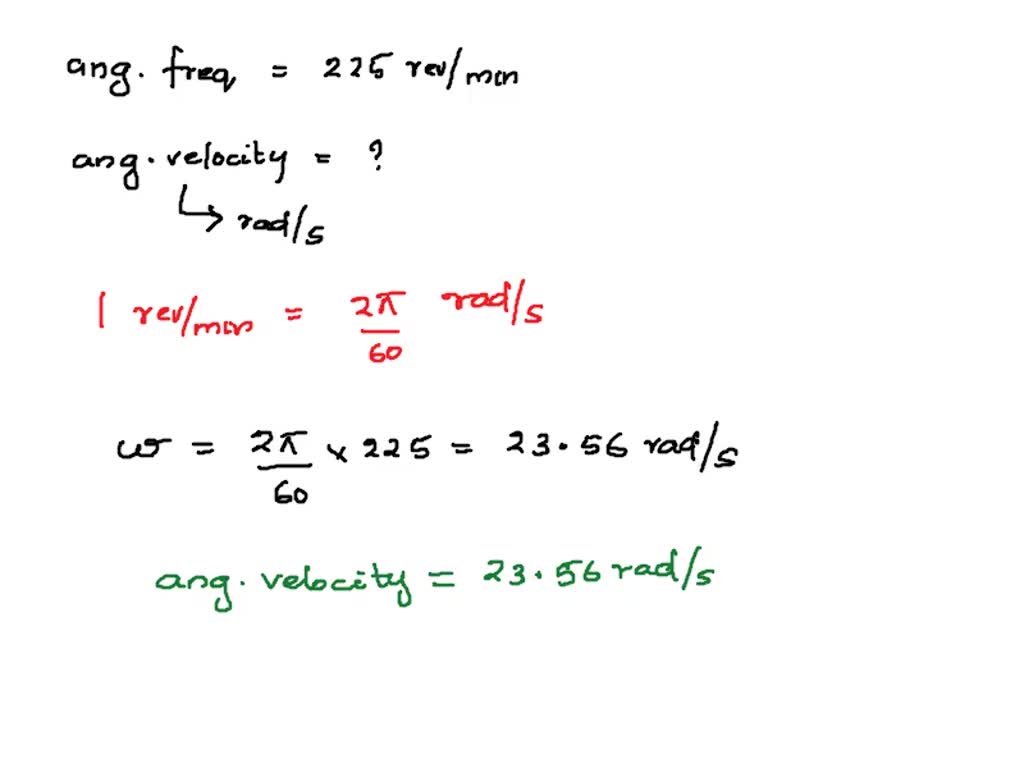 ang. freq = 225 rev/min
ang. velocity = ?
↳ rad/s
1 rev/min = 2π/60 rad/s
ω = 2π/60 × 225 = 23.56 rad/s
ang. velocity = 23.56 rad/s